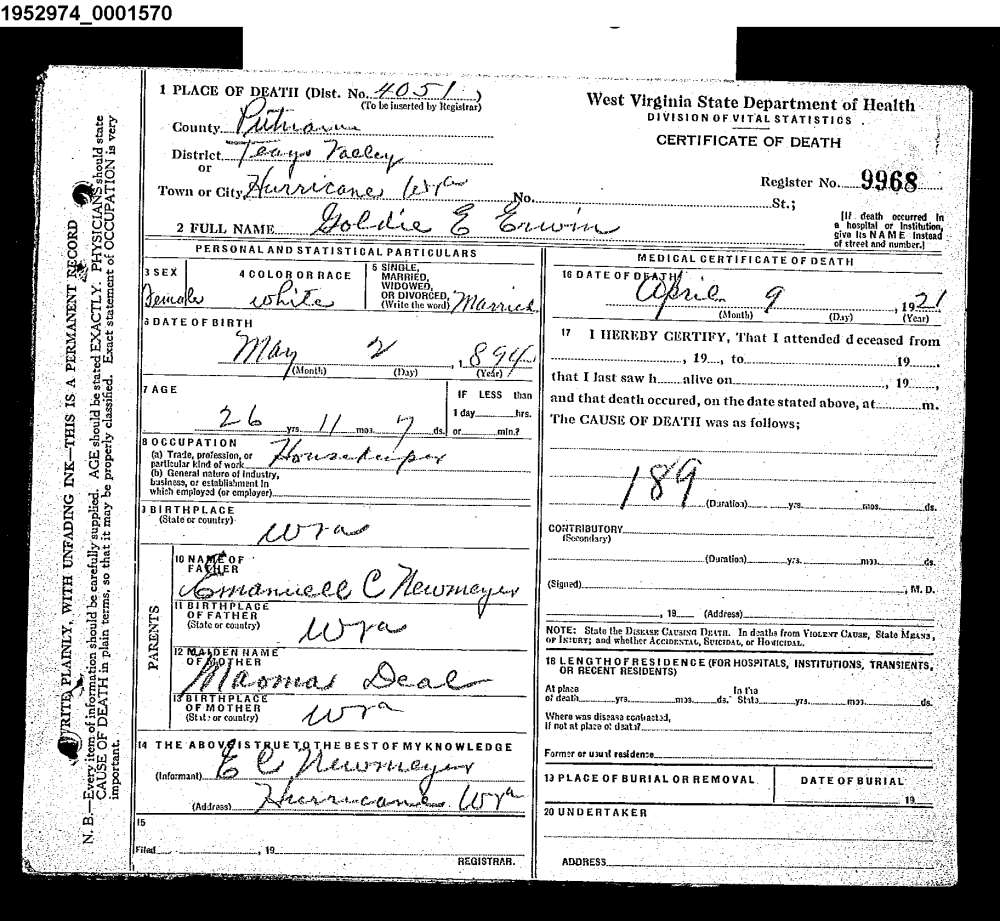 1952974_0001570
1 PLACE OF DEATH (Dist. No. 4051)
(To be inserted by Registrar)
County Putnam
District Teays Valley
or
Town or City Hurricane, W Va No. St.;
2 FULL NAME Goldie E Erwin
West Virginia State Department of Health
DIVISION OF VITAL STATISTICS
CERTIFICATE OF DEATH
Register No. 9968
[If death occurred in
a hospital or institution,
give its NAME instead
of street and number.]
N. B.—Every item of information should be carefully supplied. AGE should be stated EXACTLY. PHYSICIANS should state
CAUSE OF DEATH in plain terms, so that it may be properly classified. Exact statement of OCCUPATION is very
important.
WRITE PLAINLY, WITH UNFADING INK—THIS IS A PERMANENT RECORD
PERSONAL AND STATISTICAL PARTICULARS
3 SEX
Female
4 COLOR OR RACE
white
5 SINGLE,
MARRIED,
WIDOWED,
OR DIVORCED,
(Write the word) Married
6 DATE OF BIRTH
May 2, 1894
(Month) (Day) (Year)
7 AGE
26 yrs. 11 mos. 7 ds.
IF LESS than
1 day hrs.
or min.?
8 OCCUPATION
(a) Trade, profession, or
particular kind of work Housekeeper
(b) General nature of industry,
business, or establishment in
which employed (or employer)
9 BIRTHPLACE
(State or country)
W Va
PARENTS
10 NAME OF
FATHER
Emanuell C Newmeyer
11 BIRTHPLACE
OF FATHER
(State or country)
W Va
12 MAIDEN NAME
OF MOTHER
Maoma Deal
13 BIRTHPLACE
OF MOTHER
(State or country)
W Va
14 THE ABOVE IS TRUE TO THE BEST OF MY KNOWLEDGE
(Informant) E C Newmeyer
(Address) Hurricane W Va
15
Filed , 19
REGISTRAR.
MEDICAL CERTIFICATE OF DEATH
16 DATE OF DEATH
April 9, 1921
(Month) (Day) (Year)
17 I HEREBY CERTIFY, That I attended deceased from
, 19 , to 19 ,
that I last saw h alive on , 19 ,
and that death occured, on the date stated above, at m.
The CAUSE OF DEATH was as follows;
189
(Duration) yrs. mos. ds.
CONTRIBUTORY
(Secondary)
(Duration) yrs. mos. ds.
(Signed) , M. D.
, 19 (Address)
NOTE: State the DISEASE CAUSING DEATH. In deaths from VIOLENT CAUSE, State MEANS,
OF INJURY; and whether ACCIDENTAL, SUICIDAL, or HOMICIDAL.
18 LENGTH OF RESIDENCE (FOR HOSPITALS, INSTITUTIONS, TRANSIENTS,
OR RECENT RESIDENTS)
At place In the
of death yrs. mos. ds. State yrs. mos. ds.
Where was disease contracted,
If not at place of death?
Former or usual residence
19 PLACE OF BURIAL OR REMOVAL
DATE OF BURIAL
19
20 UNDERTAKER
ADDRESS